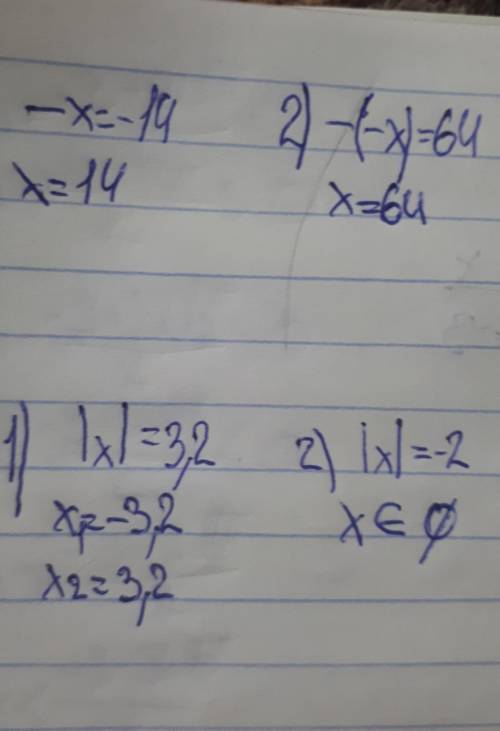 -x=-14
x=14
2) -(-x)=64
x=64
1) |x|=3,2
x₁=-3,2
x₂=3,2
2) |x|=-2
x∈∅